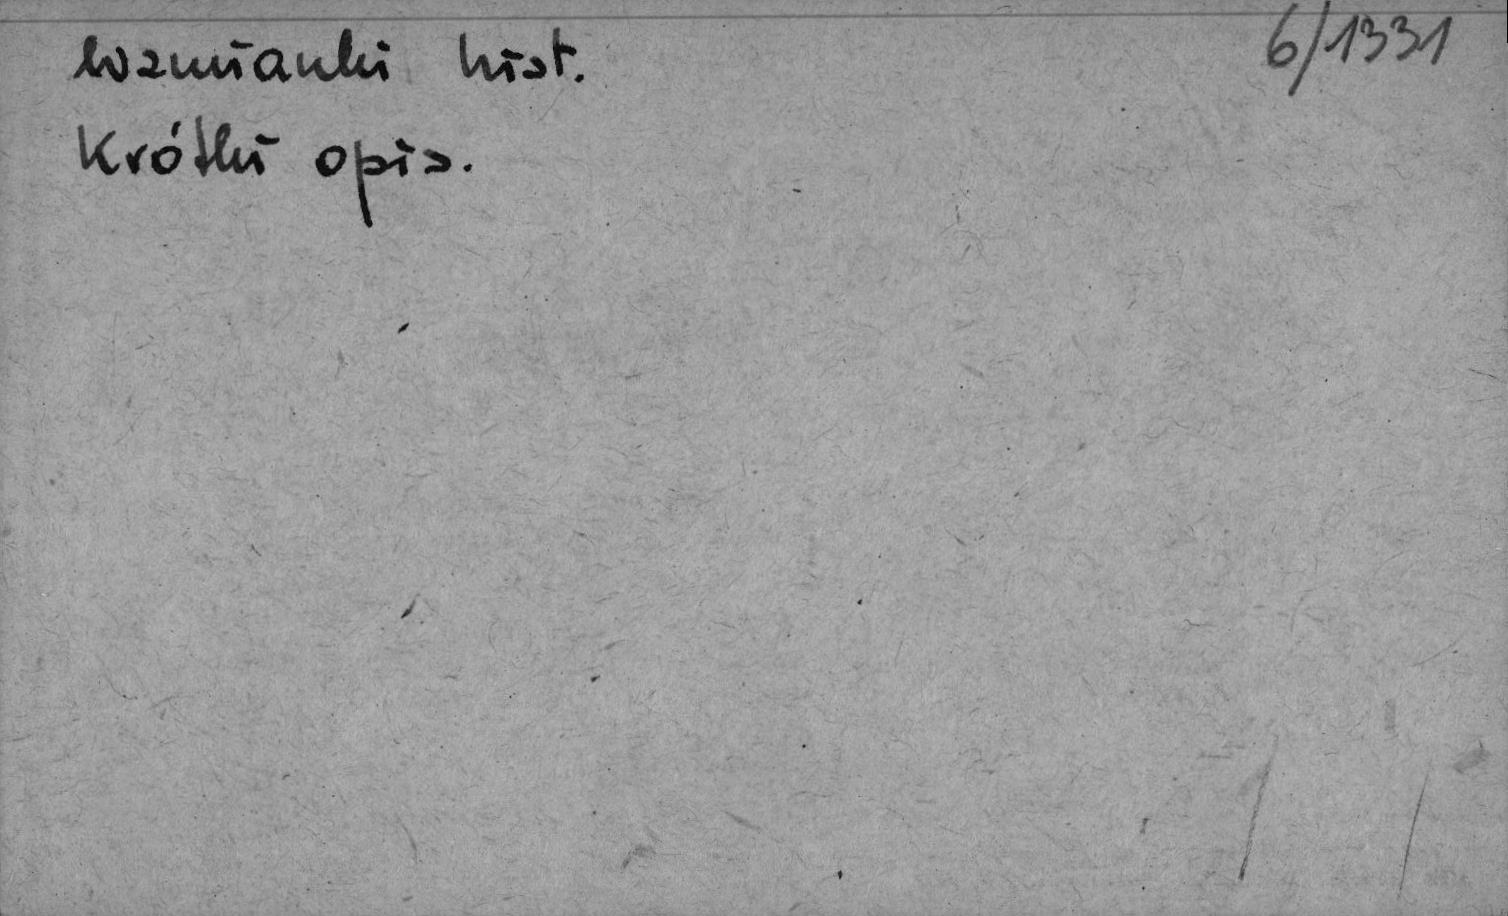 Wzmianki hist.
6/1331
Krótki opis.